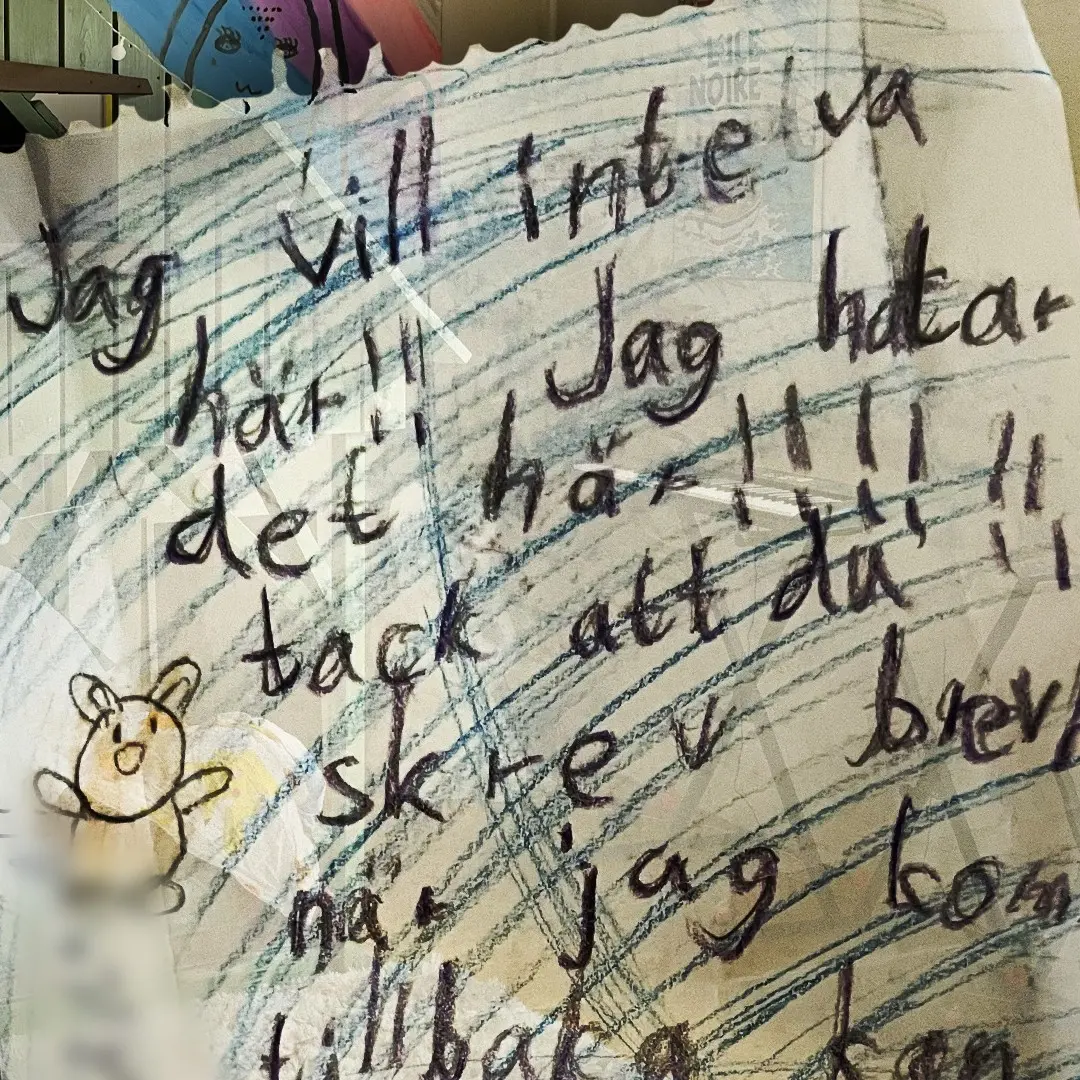 KILE
NOIRE
Jag vill inte lva
här!! Jag hatar
det här!!!! !!
tack att du
skrev brev
när jag kom
tillbaka kan